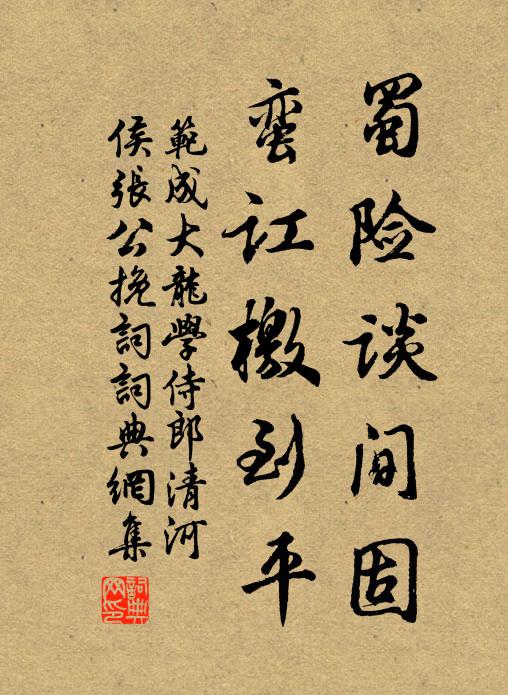 蜀险谈间固
蛮讧檄到平
範成大龍學侍郎清河
侯張公挽詞詞典網集
詞典网印